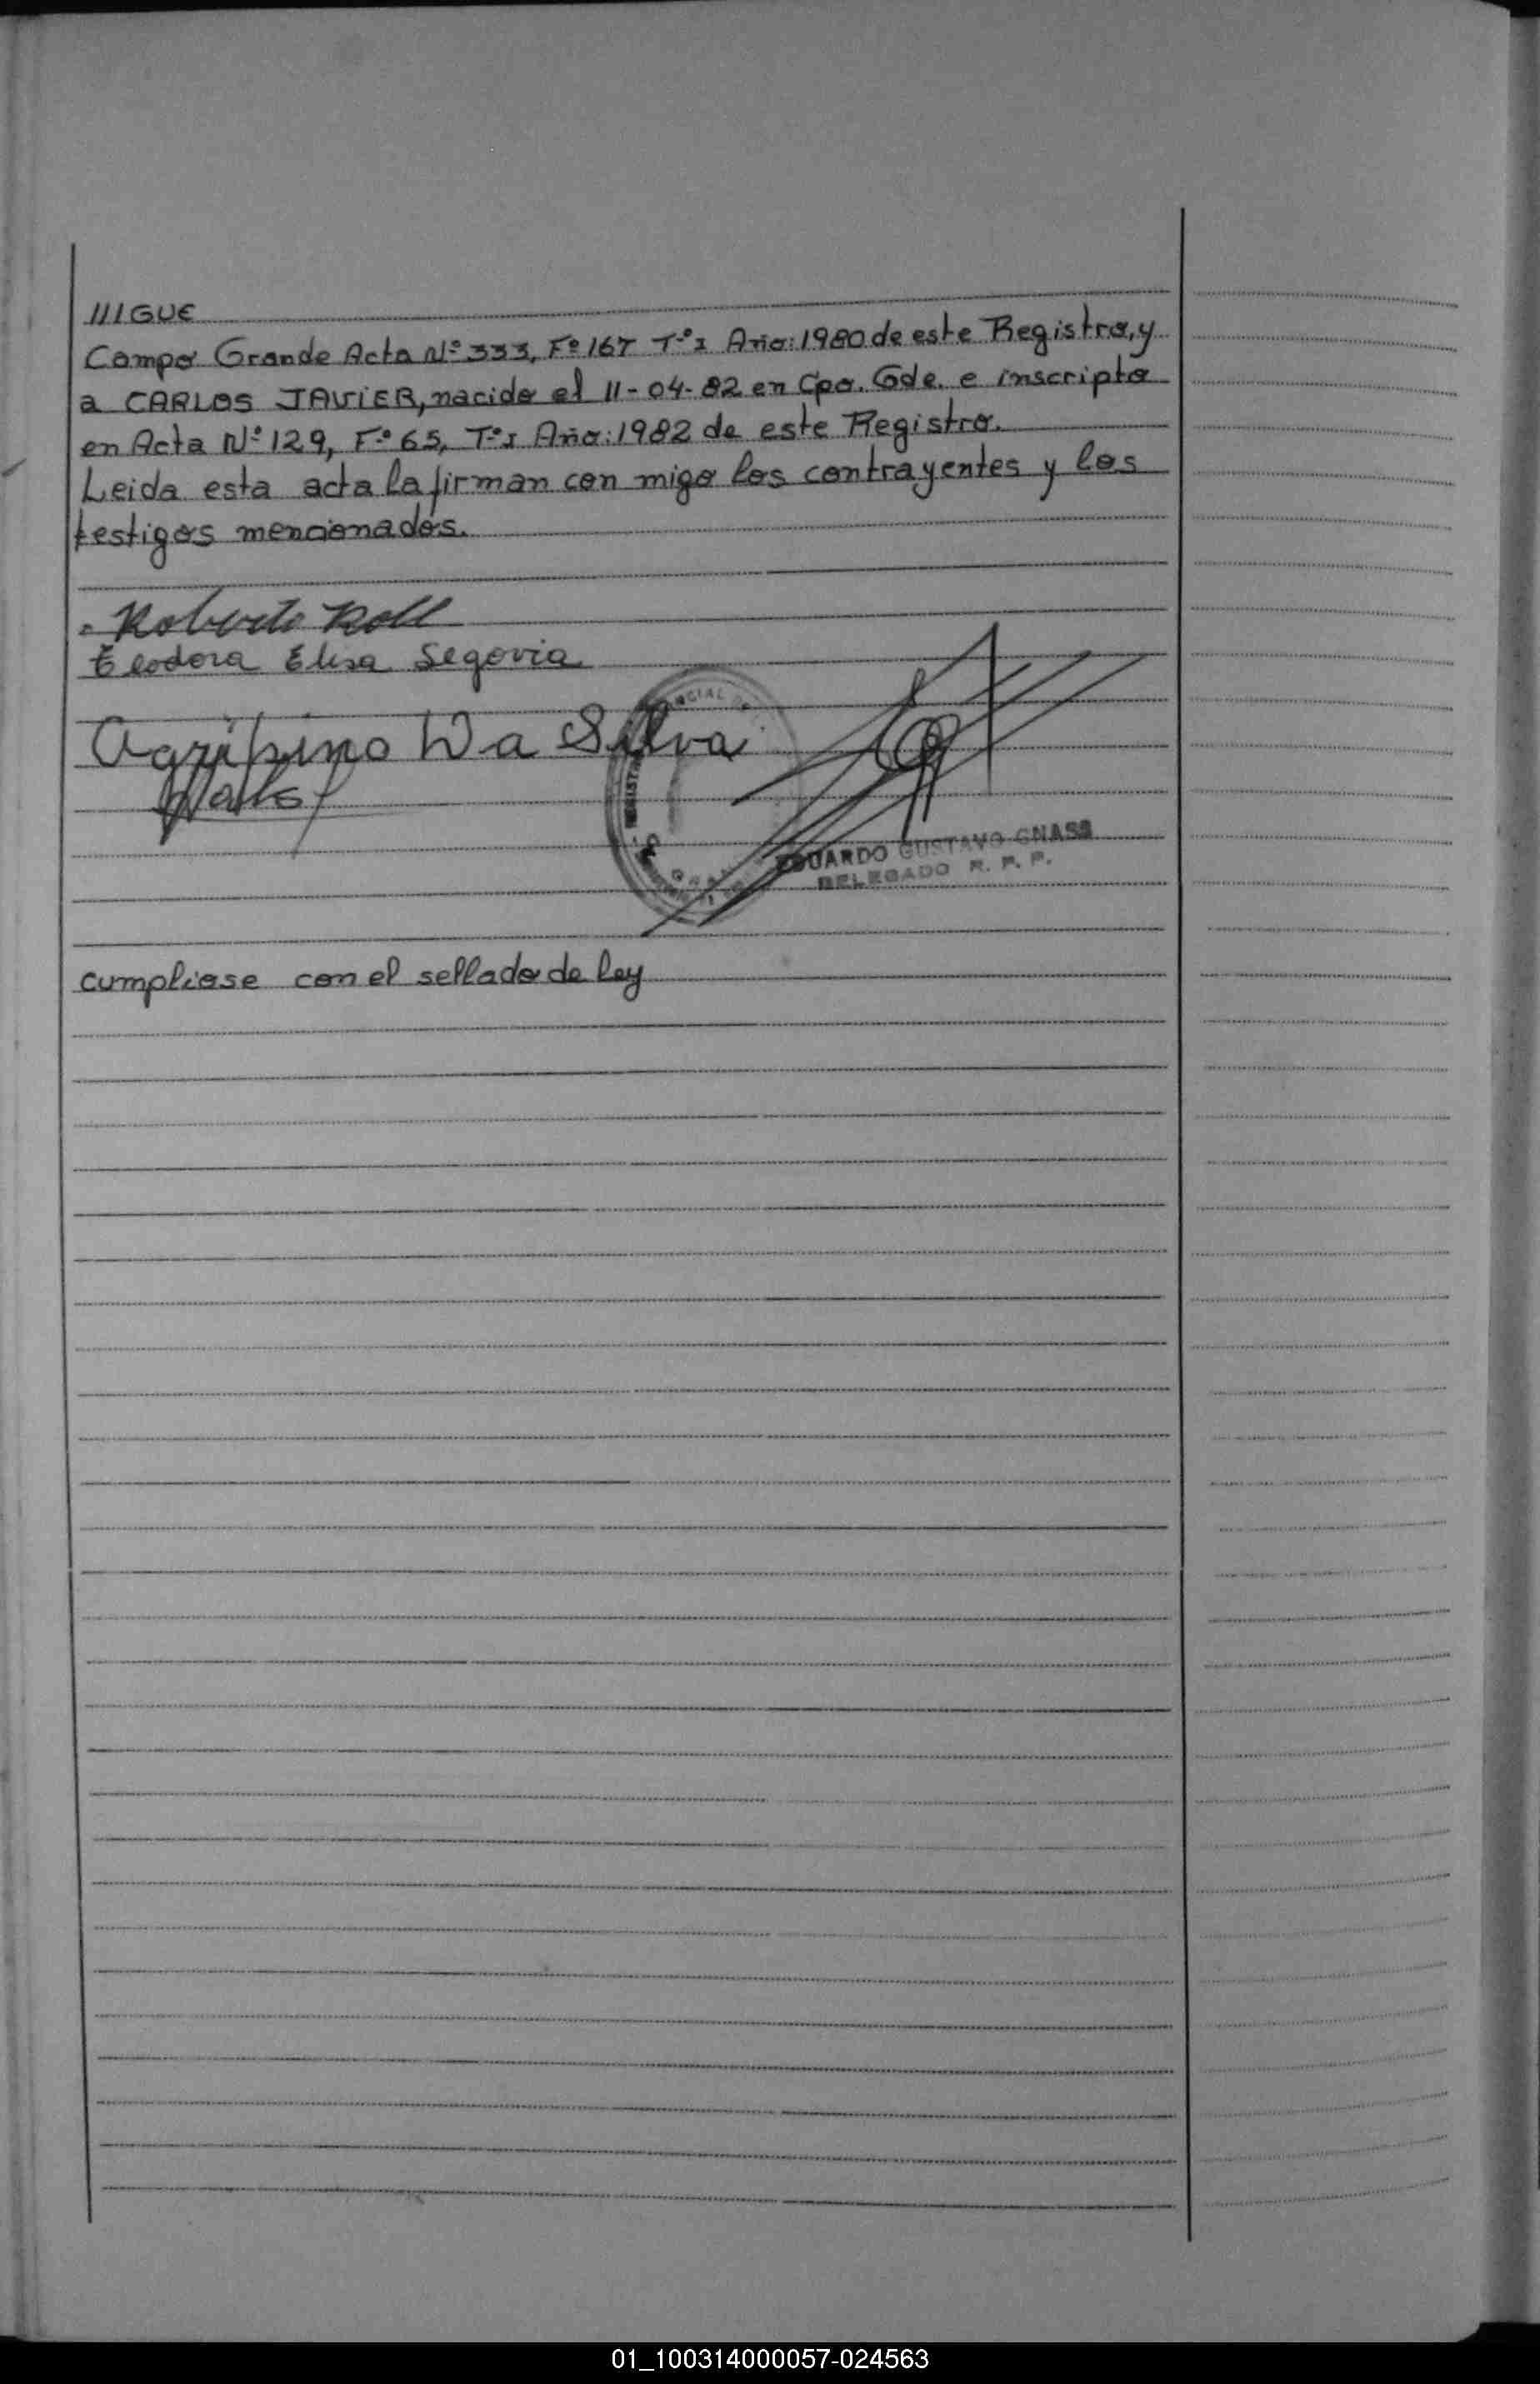 ///GUE
Campo Grande Acta Nº 333, Fº 167 Tº I Año: 1980 de este Registro, y
a CARLOS JAVIER, nacido el 11-04-82 en Cpo. Gde. e inscripto
en Acta Nº 129, Fº 65, Tº I Año: 1982 de este Registro.
Leida esta acta la firman con migo los contrayentes y los
testigos mencionados.
Roberto Roll
Eleodora Elisa Segovia
Agripino Da Silva
EDUARDO GUSTAVO GNASS
DELEGADO R. P. P.
cumpliose con el sellado de ley
01_100314000057-024563